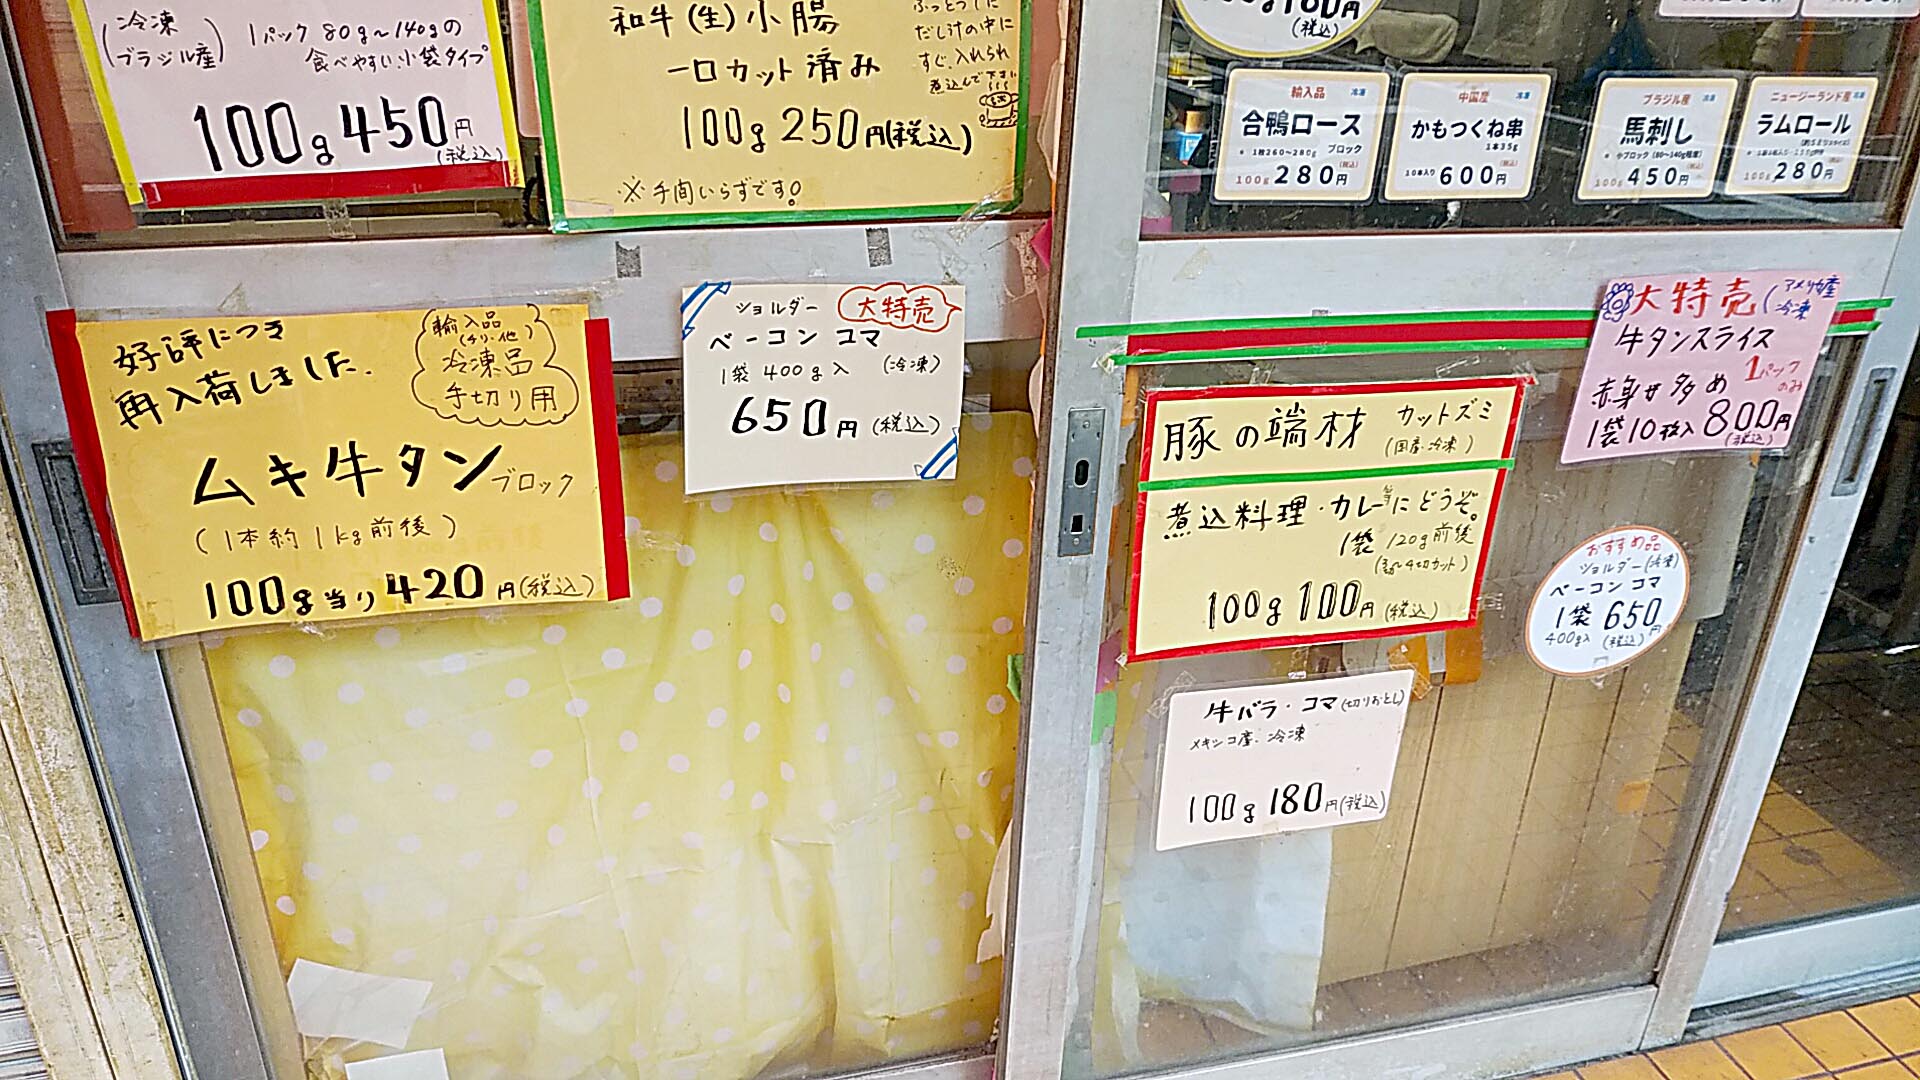 (冷凍
ブラジル産)
1パック 80g〜140gの
食べやすい、小袋タイプ
100g 450円
(税込)
和牛(生)小腸
一口カット済み
だし汁の中に
すぐ、入れられ
煮込んで下さい
100g 250円(税込)
※手間いらずです。
(税込)
輸入品 冷凍
合鴨ロース
1枚260〜280g ブロック
(税込)
100g 280円
中国産 冷凍
かもつくね串
1本35g
(税込)
10本入り 600円
ブラジル産 冷凍
馬刺し
小ブロック(80〜140g程度)
(税込)
100g 450円
ニュージーランド産 冷凍
ラムロール
(税込)
100g 280円
好評につき
再入荷しました.
輸入品
(チリ・他)
冷凍品
手切り用
ムキ牛タン ブロック
(1本約1kg前後)
100g当り 420円(税込)
ショルダー 大特売
ベーコン コマ
1袋 400g入 (冷凍)
650円(税込)
大特売(アメリカ産
冷凍
牛タンスライス
1パック
のみ
赤身サ多め
1袋10枚入 800円
(税込)
豚の端材 カットズミ
(国産・冷凍)
煮込料理・カレー等にどうぞ。
1袋 120g前後
100g 100円(税込)
おすすめ品
ショルダー(冷凍)
ベーコン コマ
1袋 650円
400g入 (税込)
牛バラ・コマ(切りおとし)
メキシコ産・冷凍
100g 180円(税込)